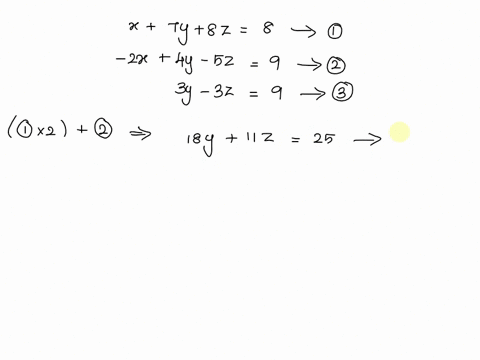 x + 7y + 8z = 8 → ①
-2x + 4y - 5z = 9 → ②
3y - 3z = 9 → ③
(① × 2) + ② ⇒ 18y + 11z = 25 →